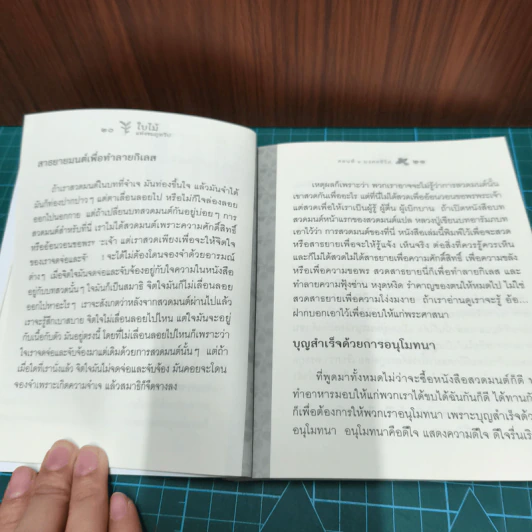 ๒๐ ใบไม้
สาธยายมนต์เพื่อทำลายกิเลส
ถ้าเราสวดมนต์ในบทที่จำเจ มันท่องขึ้นใจ แล้วมันจำได้
มันก็ท่องปากเปาๆ แต่ตาเลื่อนลอยไป หรือไม่ก็ใจล่องลอย
ออกไปนอกกาย แต่ถ้าเปลี่ยนบทสวดมนต์กันอยู่บ่อยๆ การ
สวดมนต์สำหรับที่นี่ เราไม่ได้สวดมนต์เพราะความศักดิ์สิทธิ์
หรืออ้อนวอนขอพร เจ้า แต่เราสวดเพียงเพื่อจะให้จิตใจ
ของเราจดจ่อและจ้ จะได้ไม่ต้องโดนจองจำด้วยอารมณ์
ต่างๆ เมื่อจิตใจมันจดจ่อและจับจ้องอยู่กับใจความในหนังสือ
อยู่กับบทสวดนั้นๆ ใจมันก็เป็นสมาธิ จิตใจมันก็ไม่เลื่อนลอย
ออกไปหาอะไรๆ เราจะสังเกตว่าหลังจากสวดมนต์ผ่านไปแล้ว
เราจะรู้สึกเบาสบาย จิตใจไม่เลื่อนลอยไปไหน แต่ใจมันจะอยู่
กับเนื้อกับตัว มันอยู่ตรงนี้ โดยที่ไม่เลื่อนลอยไปไหนก็เพราะว่า
ใจเราจดจ่อและจับจ้องมาแต่เดิมด้วยการสวดมนต์นั้นๆ แต่ถ้า
เมื่อใดที่เรานั่งแล้ว จิตใจมันไม่จดจ่อและจับจ้อง มันคอยจะโดน
จองจำเพราะเกิดความจำเจ แล้วสมาธิก็จืดจางลง
๒๑
เหตุผลก็เพราะว่า พวกเราอาจจะไม่รู้ว่าการสวดมนต์นั้น
เขาสวดกันเพื่ออะไร แต่ที่นี่ไม่ได้สวดเพื่ออ้อนวอนขอพรพระเจ้า
แต่สวดเพื่อให้เราเป็นผู้รู้ ผู้ตื่น ผู้เบิกบาน ถ้าเปิดหนังสือบท
สวดมนต์หน้าแรกของสวดมนต์แปล หลวงปู่เขียนบทอารัมภบท
เอาไว้ว่า การสวดมนต์ของที่นี่ หนังสือเล่มนี้พิมพ์ไว้เพื่อจะสวด
หรือสาธยายเพื่อจะให้รู้แจ้ง เห็นจริง ต่อสิ่งที่ควรรู้ควรเห็น
และก็ไม่ได้สวดไม่ได้สาธยายเพื่อความศักดิ์สิทธิ์ เพื่อความขลัง
หรือเพื่อความขอพร สวดสาธยายนี้ก็เพื่อทำลายกิเลส และ
ทำลายความฟุ้งซ่าน หงุดหงิด รำคาญของตนให้หมดไป ไม่ใช่
สวดสาธยายเพื่อความโง่งมงาย ถ้าเราอ่านดูเราจะรู้ อ้อ...
ฝากบอกเอาไว้เพื่อมอบให้แก่พระศาสนา
บุญสำเร็จด้วยการอนุโมทนา
ที่พูดมาทั้งหมดไม่ว่าจะซื้อหนังสือสวดมนต์ก็ดี
ทำอาหารมอบให้แก่พวกเราได้ขบได้ฉันกันก็ดี ได้ทาน
ก็เพื่อต้องการให้พวกเราอนุโมทนา เพราะบุญสำเร็จด้ว
อนุโมทนา อนุโมทนาคือดีใจ แสดงความดีใจ ดีใจรื่นเริ